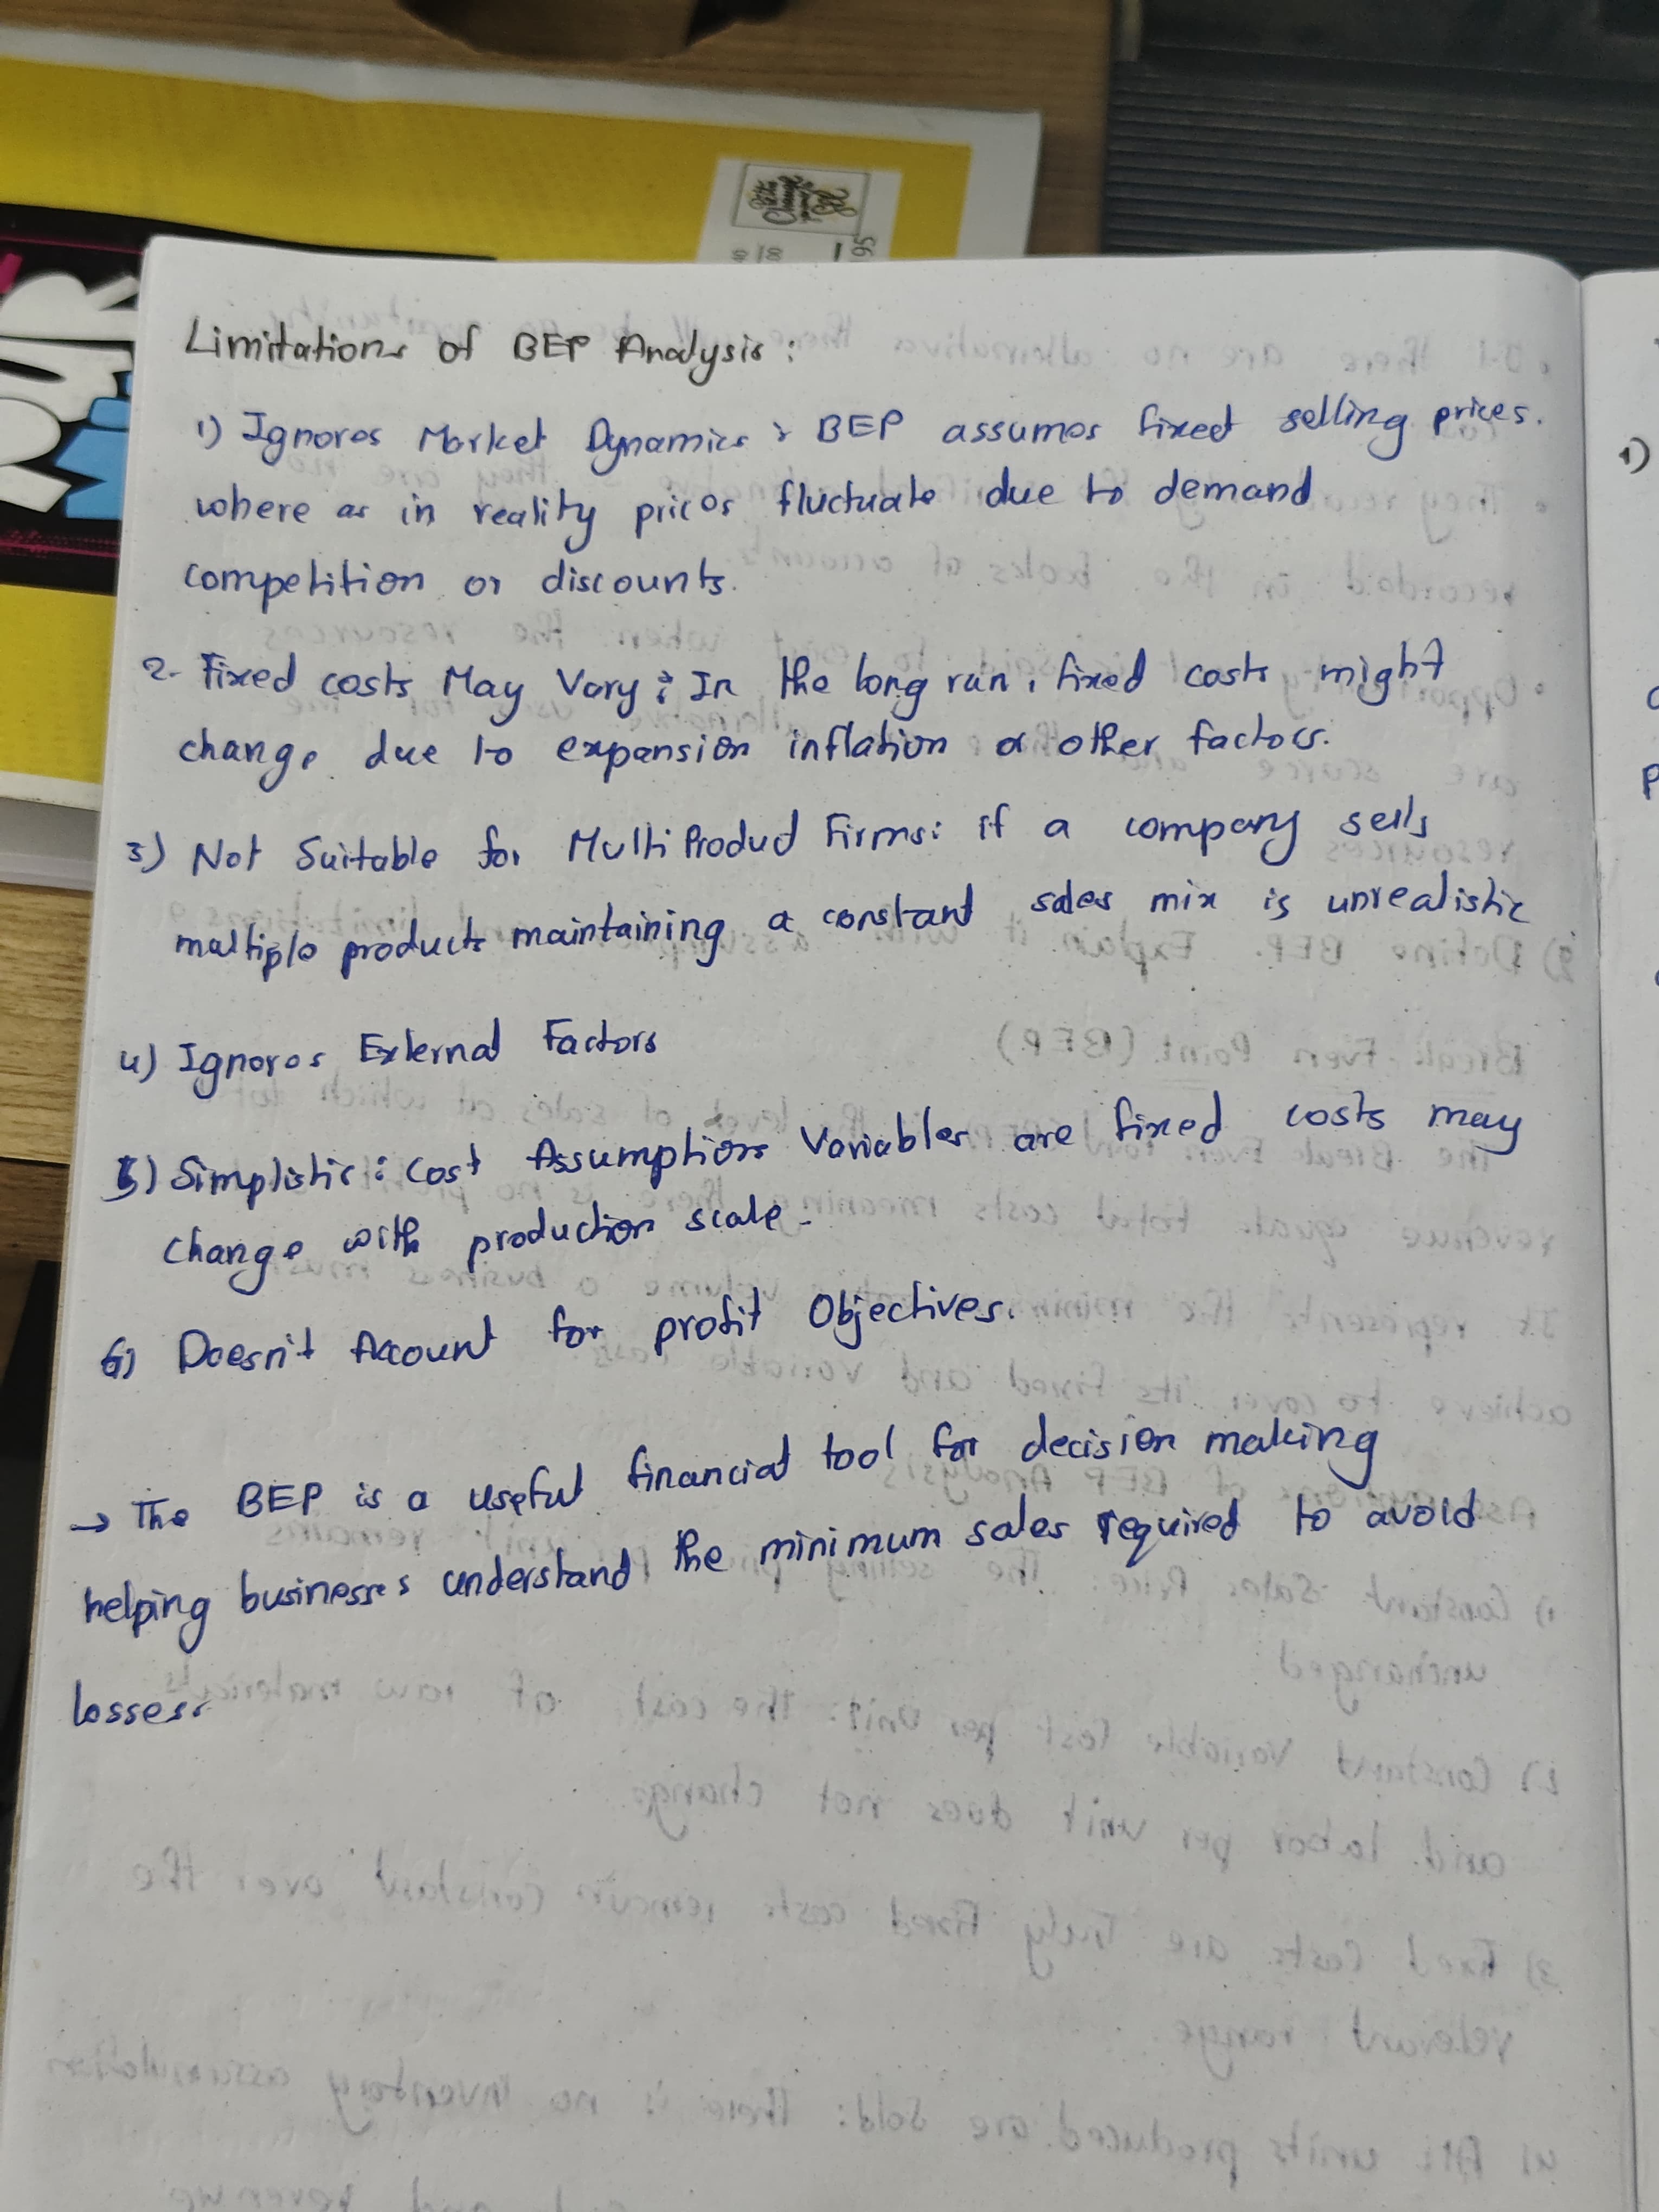 Limitations of BEP Analysis:
1) Ignores Market Dynamics: BEP assumes fixed selling prices.
where as in reality prices fluctuate due to demand
competition or discounts.
2- Fixed costs May Vary: In the long run, fixed costs might
change due to expansion inflation or other factors.
3) Not Suitable for Multi Product Firms: if a company sells
multiple products maintaining a constant sales mix is unrealistic
4) Ignores External Factors
5) Simplistic: Cost Assumptions Variables are fixed costs may
change with production scale.
6) Doesn't Account for profit Objectives.
→ The BEP is a useful financial tool for decision making
helping businesses understand the minimum sales required to avoid
losses.
1)